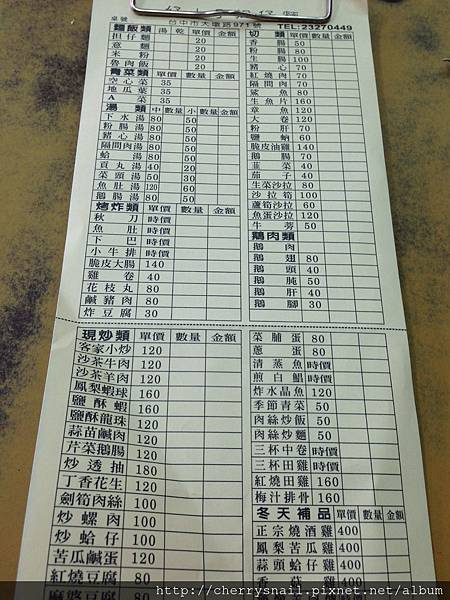 桌號
台中市大墩路971號
TEL:23270449
麵飯類 湯 乾 單價 數量 金額
担仔麵 20
意麵 20
米粉 20
魯肉飯 20
青菜類 單價 數量 金額
空心菜 35
地瓜葉 35
A菜 35
湯類 中 數量 小 數量 金額
下水湯 80 50
粉腸湯 80 50
豬心湯 80 50
隔間肉湯 80 50
蛤湯 80 50
貢丸湯 40 20
菜頭湯 50 30
魚肚湯 120 60
鵝腸湯 80 50
烤炸類 單價 數量 金額
秋刀 時價
魚肚 時價
下巴 時價
小牛排 時價
脆皮大腸 140
雞卷 40
花枝丸 80
鹹豬肉 80
炸豆腐 30
切類 單價 數量 金額
香腸 50
粉腸 80
生腸 100
豬心 70
紅燒肉 70
隔間肉 70
鯊魚 80
生魚片 160
章魚 120
大卷 120
粉肝 70
鹽蚋 60
脆皮油雞 140
鵝腸 70
韮菜 40
茄子 40
生菜沙拉 80
沙拉筍 100
蘆筍沙拉 100
魚蛋沙拉 120
牛蒡 50
鵝肉類 單價 數量 金額
鵝肉
鵝翅 80
鵝頭 40
鵝肫 50
鵝肝 40
鵝腳 30
現炒類 單價 數量 金額
客家小炒 120
沙茶牛肉 120
沙茶羊肉 120
鳳梨蝦球 160
鹽酥蝦 160
鹽酥龍珠 120
蒜苗鹹肉 120
芹菜鵝腸 120
炒透抽 180
丁香花生 120
劍筍肉絲 100
炒螺肉 100
炒蛤仔 100
苦瓜鹹蛋 120
紅燒豆腐 80
麻婆豆腐 80
菜脯蛋 80
蔥蛋 80
清蒸魚 時價
煎白鯧 時價
炸水晶魚 120
季節青菜 50
肉絲炒飯 50
肉絲炒麵 50
三杯中卷 時價
三杯田雞 時價
紅燒田雞 160
梅汁排骨 160
冬天補品 單價 數量 金額
正宗燒酒雞 400
鳳梨苦瓜雞 400
蒜頭蛤仔雞 400
香菇雞 400
http://cherrysnail.pixnet.net/album